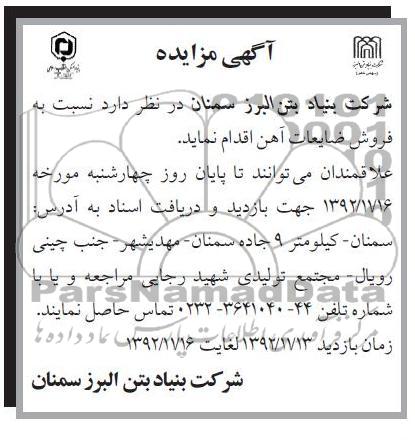 آگهی مزایده
شرکت بنیاد بتن البرز سمنان در نظر دارد نسبت به
فروش ضایعات آهن اقدام نماید.
علاقمندان می‌توانند تا پایان روز چهارشنبه مورخه
۱۳۹۲/۱/۱۶ جهت بازدید و دریافت اسناد به آدرس:
سمنان- کیلومتر ۹ جاده سمنان- مهدیشهر- جنب چینی
رویال- مجتمع تولیدی شهید رجایی مراجعه و یا با
شماره تلفن ۴۴- ۳۶۴۱۰۴۰- ۰۲۳۲ تماس حاصل نمایند.
زمان بازدید ۱۳۹۲/۱/۱۳ لغایت ۱۳۹۲/۱/۱۶
شرکت بنیاد بتن البرز سمنان
ParsNamadData